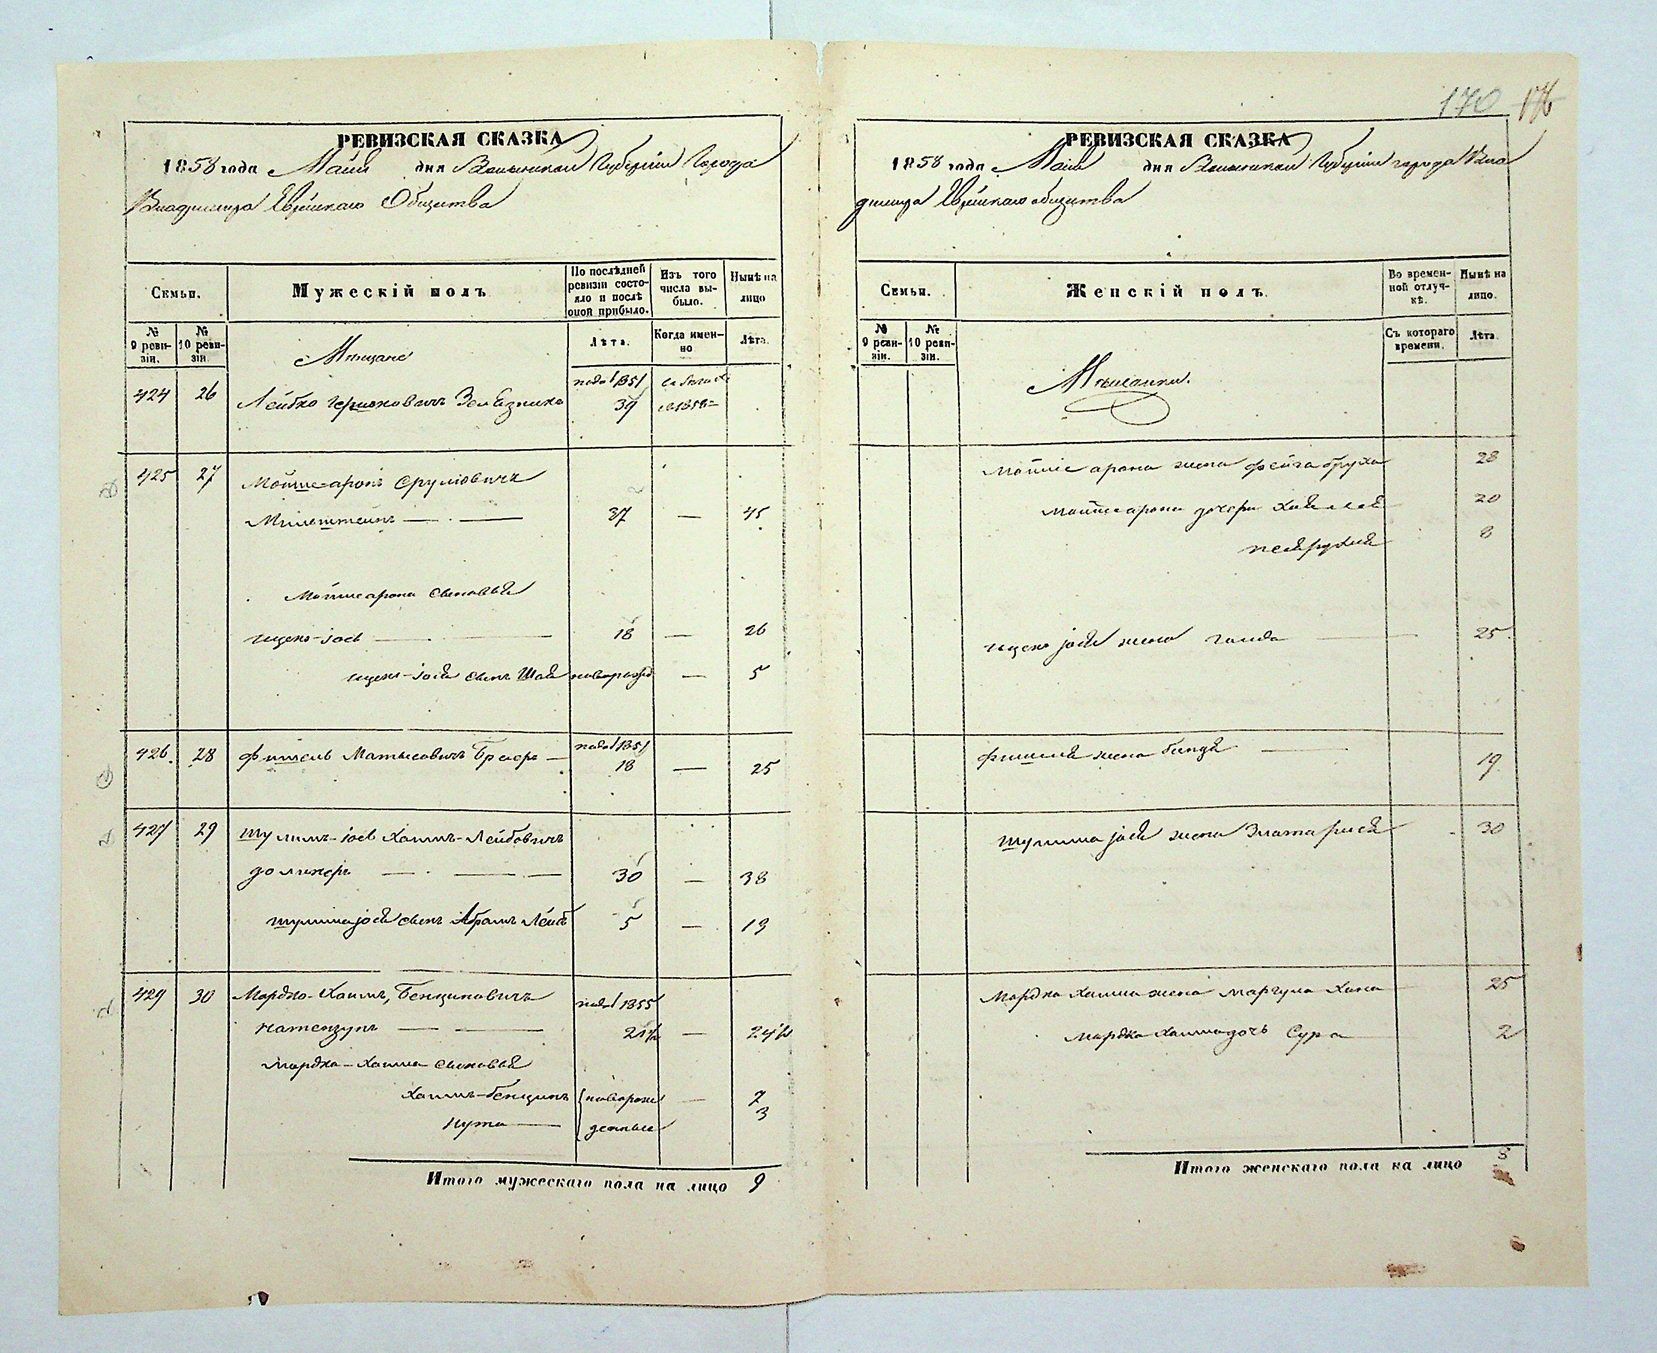 170 176
РЕВИЗСКАЯ СКАЗКА
1858 года Маия дня Волынской Губерніи Города
Владимира Еврейскаго Общества
Семьи.
Мужескій полъ
По послѣдней ревизіи состояло и послѣ оной прибыло.
Изъ того числа выбыло.
Нынѣ на лицо
№ 9 ревизіи.
№ 10 ревизіи
Мѣщане
Лѣта.
Когда именно
Лѣта.
424 26 Лейбко Гершковичъ 1851 39
425 27 Мойше-аронъ Срулiовичъ
Мильштейнъ — 37 — 45
Мойше арона сыновья
ицко-іосъ — 18 — 26
ицко-іося сынъ Шая новорожд — 5
426. 28 фишель Матысовичъ — 1851 18 — 25
427 29 Шулимъ-іосъ Хаимъ-Лейбовичъ
— 30 — 38
шулима іося сынъ Абрамъ Лейб 5 — 13
429 30 Мордко-Хаимъ, Бенционовичъ 1855
— 21½ — 24½
Мордка-Хаима сыновья
Хаимъ-Бенционъ новорож — 7
Нута — денные 3
Итого мужескаго пола на лицо 9
РЕВИЗСКАЯ СКАЗКА
1858 года Маия дня Волынской Губерніи города Вла
димира Еврейскаго общества
Семьи.
Женскій полъ.
Во временной отлучкѣ.
Нынѣ на лицо.
№ 9 ревизіи.
№ 10 ревизіи.
Мѣщанки.
Съ котораго времени.
Лѣта.
Мойше арона жена фейга бруха 28
Мойше арона дочери 20
8
ицко іося жена голда — 25.
фишеля жена — 19
шулима іося жена Злата рися 30
Мордка Хаима жена Маргуля Хана 25
Мордка Хаима дочь Сура — 2
Итого женскаго пола на лицо 8